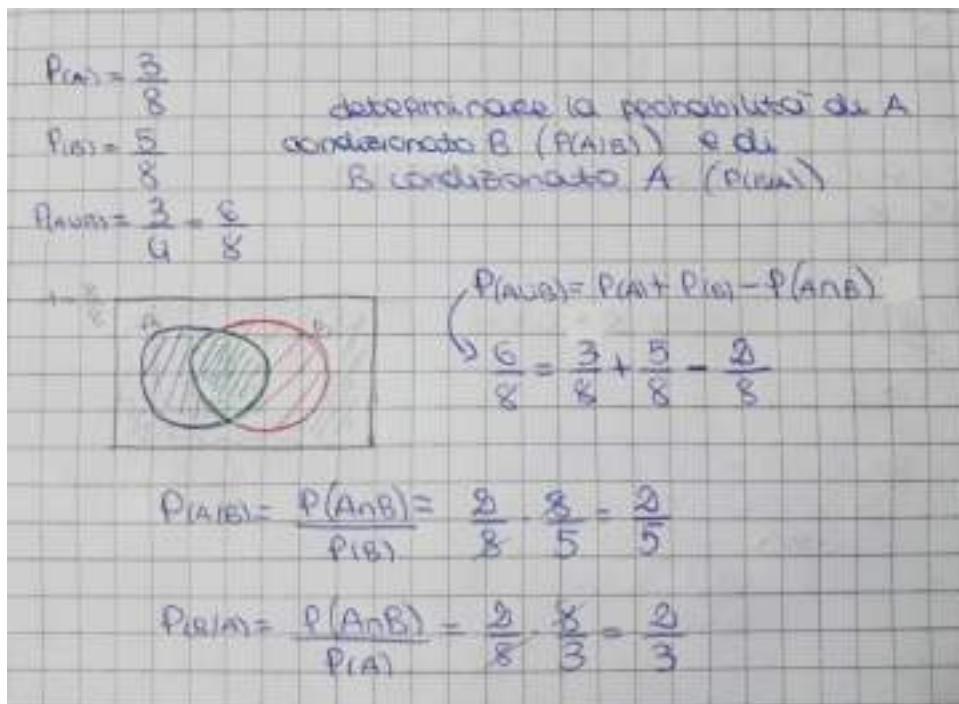 P(A) = 3/8
P(B) = 5/8
P(AUB) = 3/4 = 6/8
determinare la probabilità di A
condizionato B (P(A|B)) e di
B condizionato A (P(B|A))
A B
P(AUB) = P(A) + P(B) - P(A∩B)
6/8 = 3/8 + 5/8 - 2/8
P(A|B) = P(A∩B)/P(B) = 2/8 · 8/5 = 2/5
P(B|A) = P(A∩B)/P(A) = 2/8 · 8/3 = 2/3